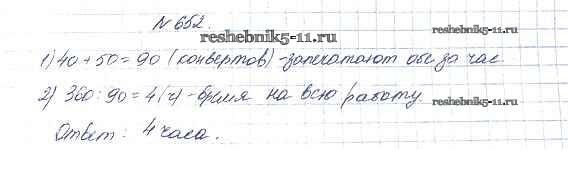 №652.
reshebnik5-11.ru
reshebnik5-11.ru
1) 40 + 50 = 90 (конвертов) - запечатают обе за час
2) 360 : 90 = 4 (ч) - время на всю работу
reshebnik5-11.ru
Ответ: 4 часа.